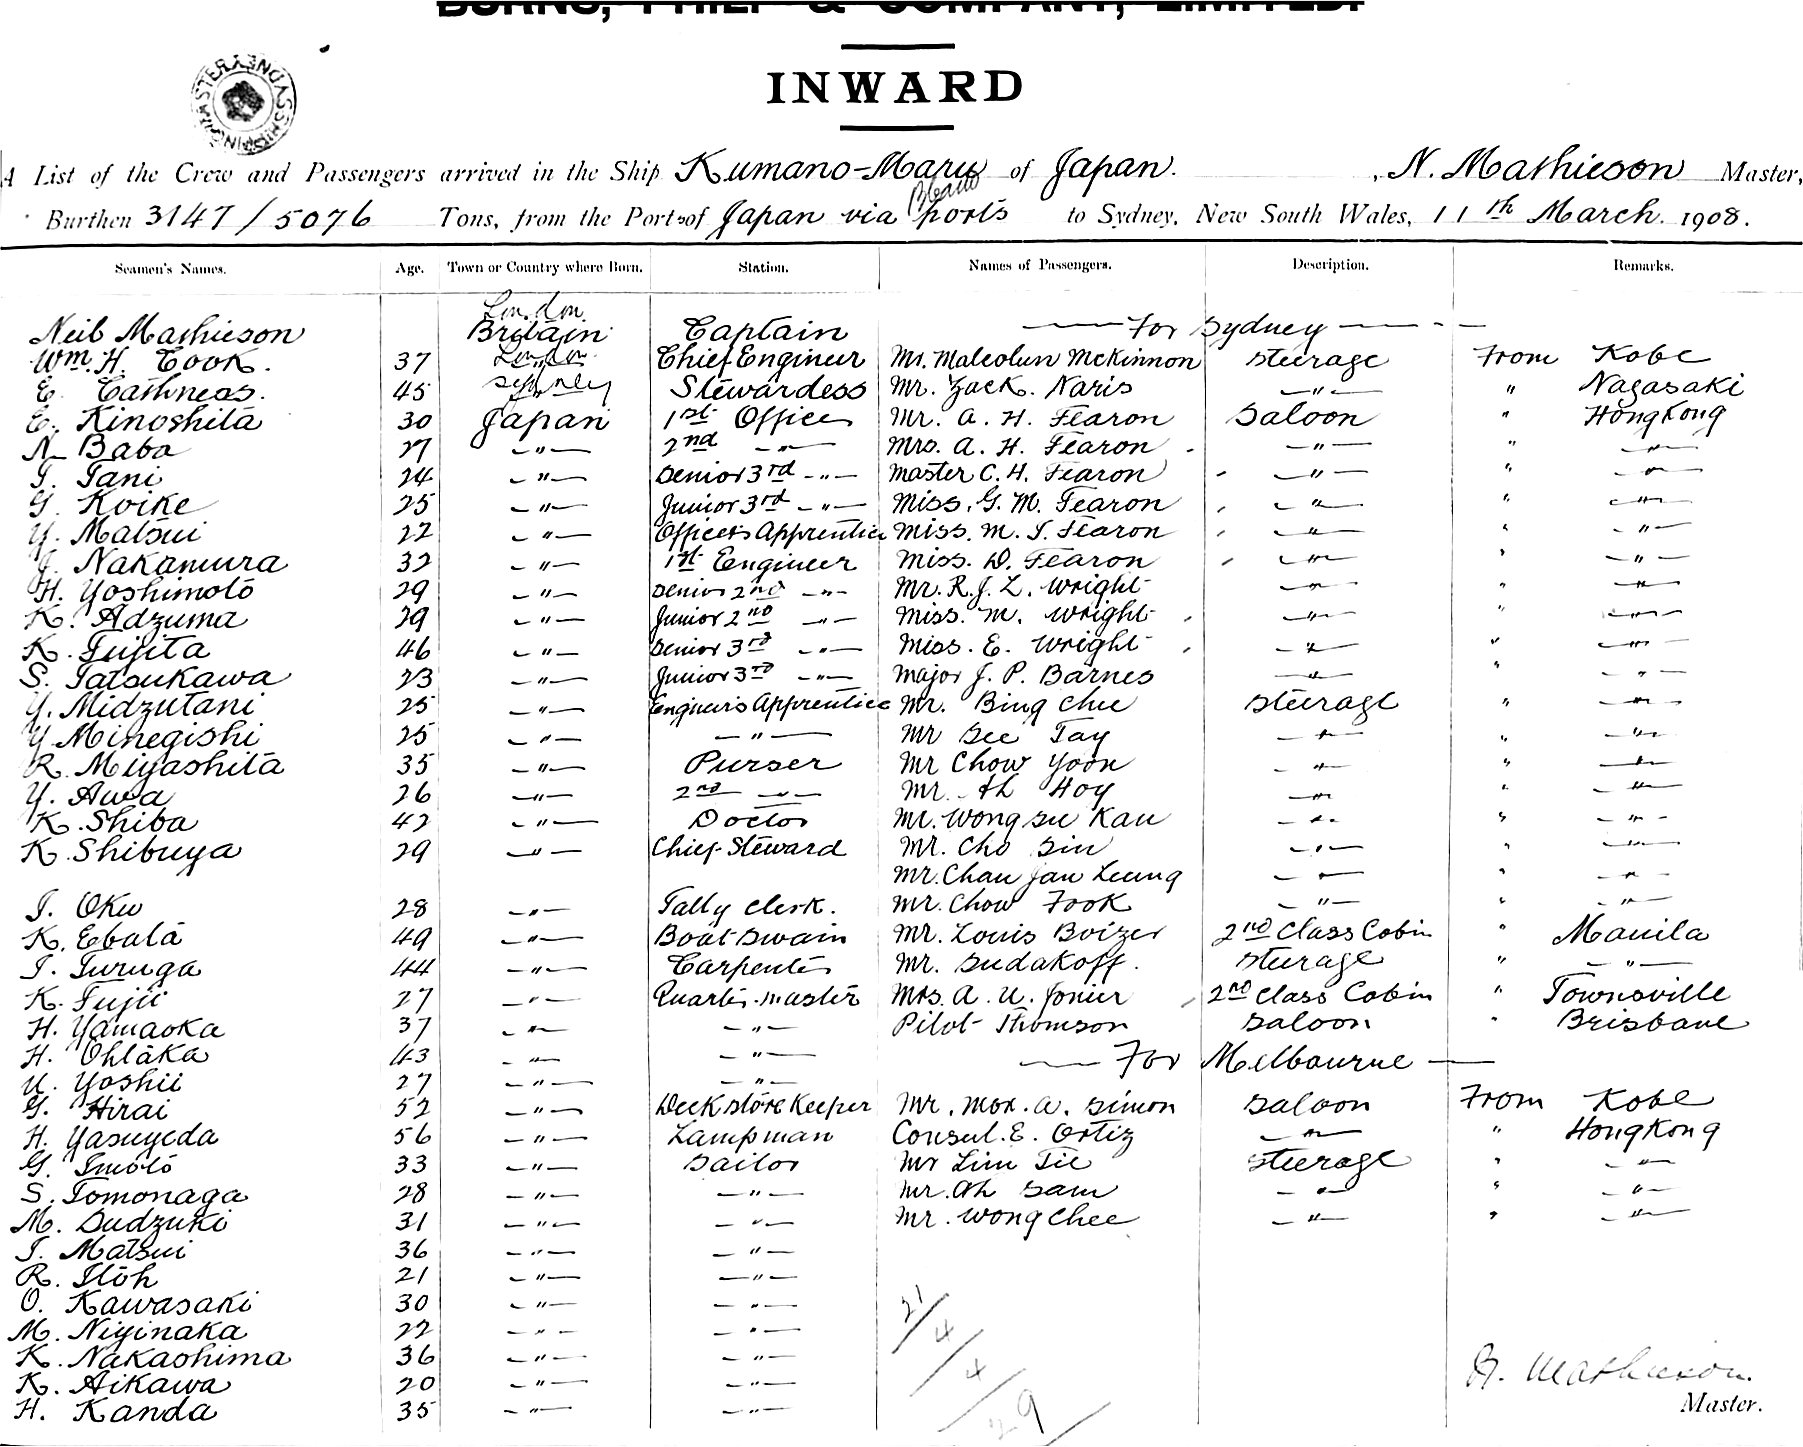 BURNS, PHILP & COMPANY, LIMITED.
INWARD
SHIPPING MASTER SYDNEY
A List of the Crew and Passengers arrived in the Ship Kumano-Maru of Japan. , N. Mathieson Master,
Burthen 3147/5076 Tons, from the Ports of Japan via ports to Sydney, New South Wales, 11th March. 1908.
Seamen's Names. Age. Town or Country where Born. Station. Names of Passengers. Description. Remarks.
London
Neil Mathieson Britain Captain — For Sydney —
Wm. H. Cook. 37 London Chief Engineer Mr. Malcolm McKinnon Steerage From Kobe
E. Cathneas. 45 Sydney Stewardess Mr. Zack. Naris — " — " Nagasaki
E. Kinoshita 30 Japan 1st Officer Mr. A. H. Fearon Saloon " HongKong
N. Baba 27 — " — 2nd — " — Mrs. A. H. Fearon — " — " — " —
T. Tani 24 — " — Senior 3rd — " — Master C. H. Fearon — " — " — " —
G. Koike 25 — " — Junior 3rd — " — Miss. G. M. Fearon — " — " — " —
Y. Matsui 22 — " — Officers Apprentice Miss. M. I. Fearon — " — " — " —
J. Nakamura 32 — " — 1st Engineer Miss. D. Fearon — " — " — " —
H. Yoshimoto 29 — " — Senior 2nd — " — Mr. R. J. L. Wright — " — " — " —
K. Adzuma 29 — " — Junior 2nd — " — Miss. M. Wright — " — " — " —
K. Fujita 46 — " — Senior 3rd — " — Miss. E. Wright — " — " — " —
S. Tatsukawa 23 — " — Junior 3rd — " — Major J. P. Barnes — " — " — " —
Y. Midzutani 25 — " — Engineers Apprentice Mr. Bing Chee Steerage " — " —
Y. Minegishi 25 — " — — " — Mr See Tay — " — " — " —
R. Miyashita 35 — " — Purser Mr Chow Yoon — " — " — " —
Y. Awa 26 — " — 2nd — " — Mr. Ah Hoy — " — " — " —
K. Shiba 42 — " — Doctor Mr. Wong Su Kau — " — " — " —
K. Shibuya 29 — " — Chief Steward Mr. Cho Sin — " — " — " —
Mr. Chau Jan Leung — " — " — " —
I. Oku 28 — " — Tally Clerk. Mr. Chow Fook — " — " — " —
K. Ebata 49 — " — Boat Swain Mr. Louis Boizer 2nd Class Cabin " Manila
I. Turuga 44 — " — Carpenter Mr. Sudakoff. Steerage " — " —
K. Fujii 27 — " — Quarter-master Mrs. A. U. Jonier 2nd Class Cabin " Townsville
H. Yamaoka 37 — " — — " — Pilot Thomson Saloon " Brisbane
H. Ohtaka 43 — " — — " — — For Melbourne —
U. Yoshii 27 — " — — " —
G. Hirai 52 — " — Deck Store Keeper Mr. Mox. A. Simon Saloon From Kobe
H. Yasuyeda 56 — " — Lampman Consul. E. Ortiz — " — " HongKong
G. Imoto 33 — " — Sailor Mr Lim Tie Steerage " — " —
S. Tomonaga 28 — " — — " — Mr. Ah Sam — " — " — " —
M. Sudzuki 31 — " — — " — Mr. Wong Chee — " — " — " —
I. Matsui 36 — " — — " —
R. Itoh 21 — " — — " —
O. Kawasaki 30 — " — — " —
M. Niyinaka 22 — " — — " —
K. Nakashima 36 — " — — " —
K. Aikawa 20 — " — — " —
H. Kanda 35 — " — — " —
21/4/4/29
N. Mathieson.
Master.